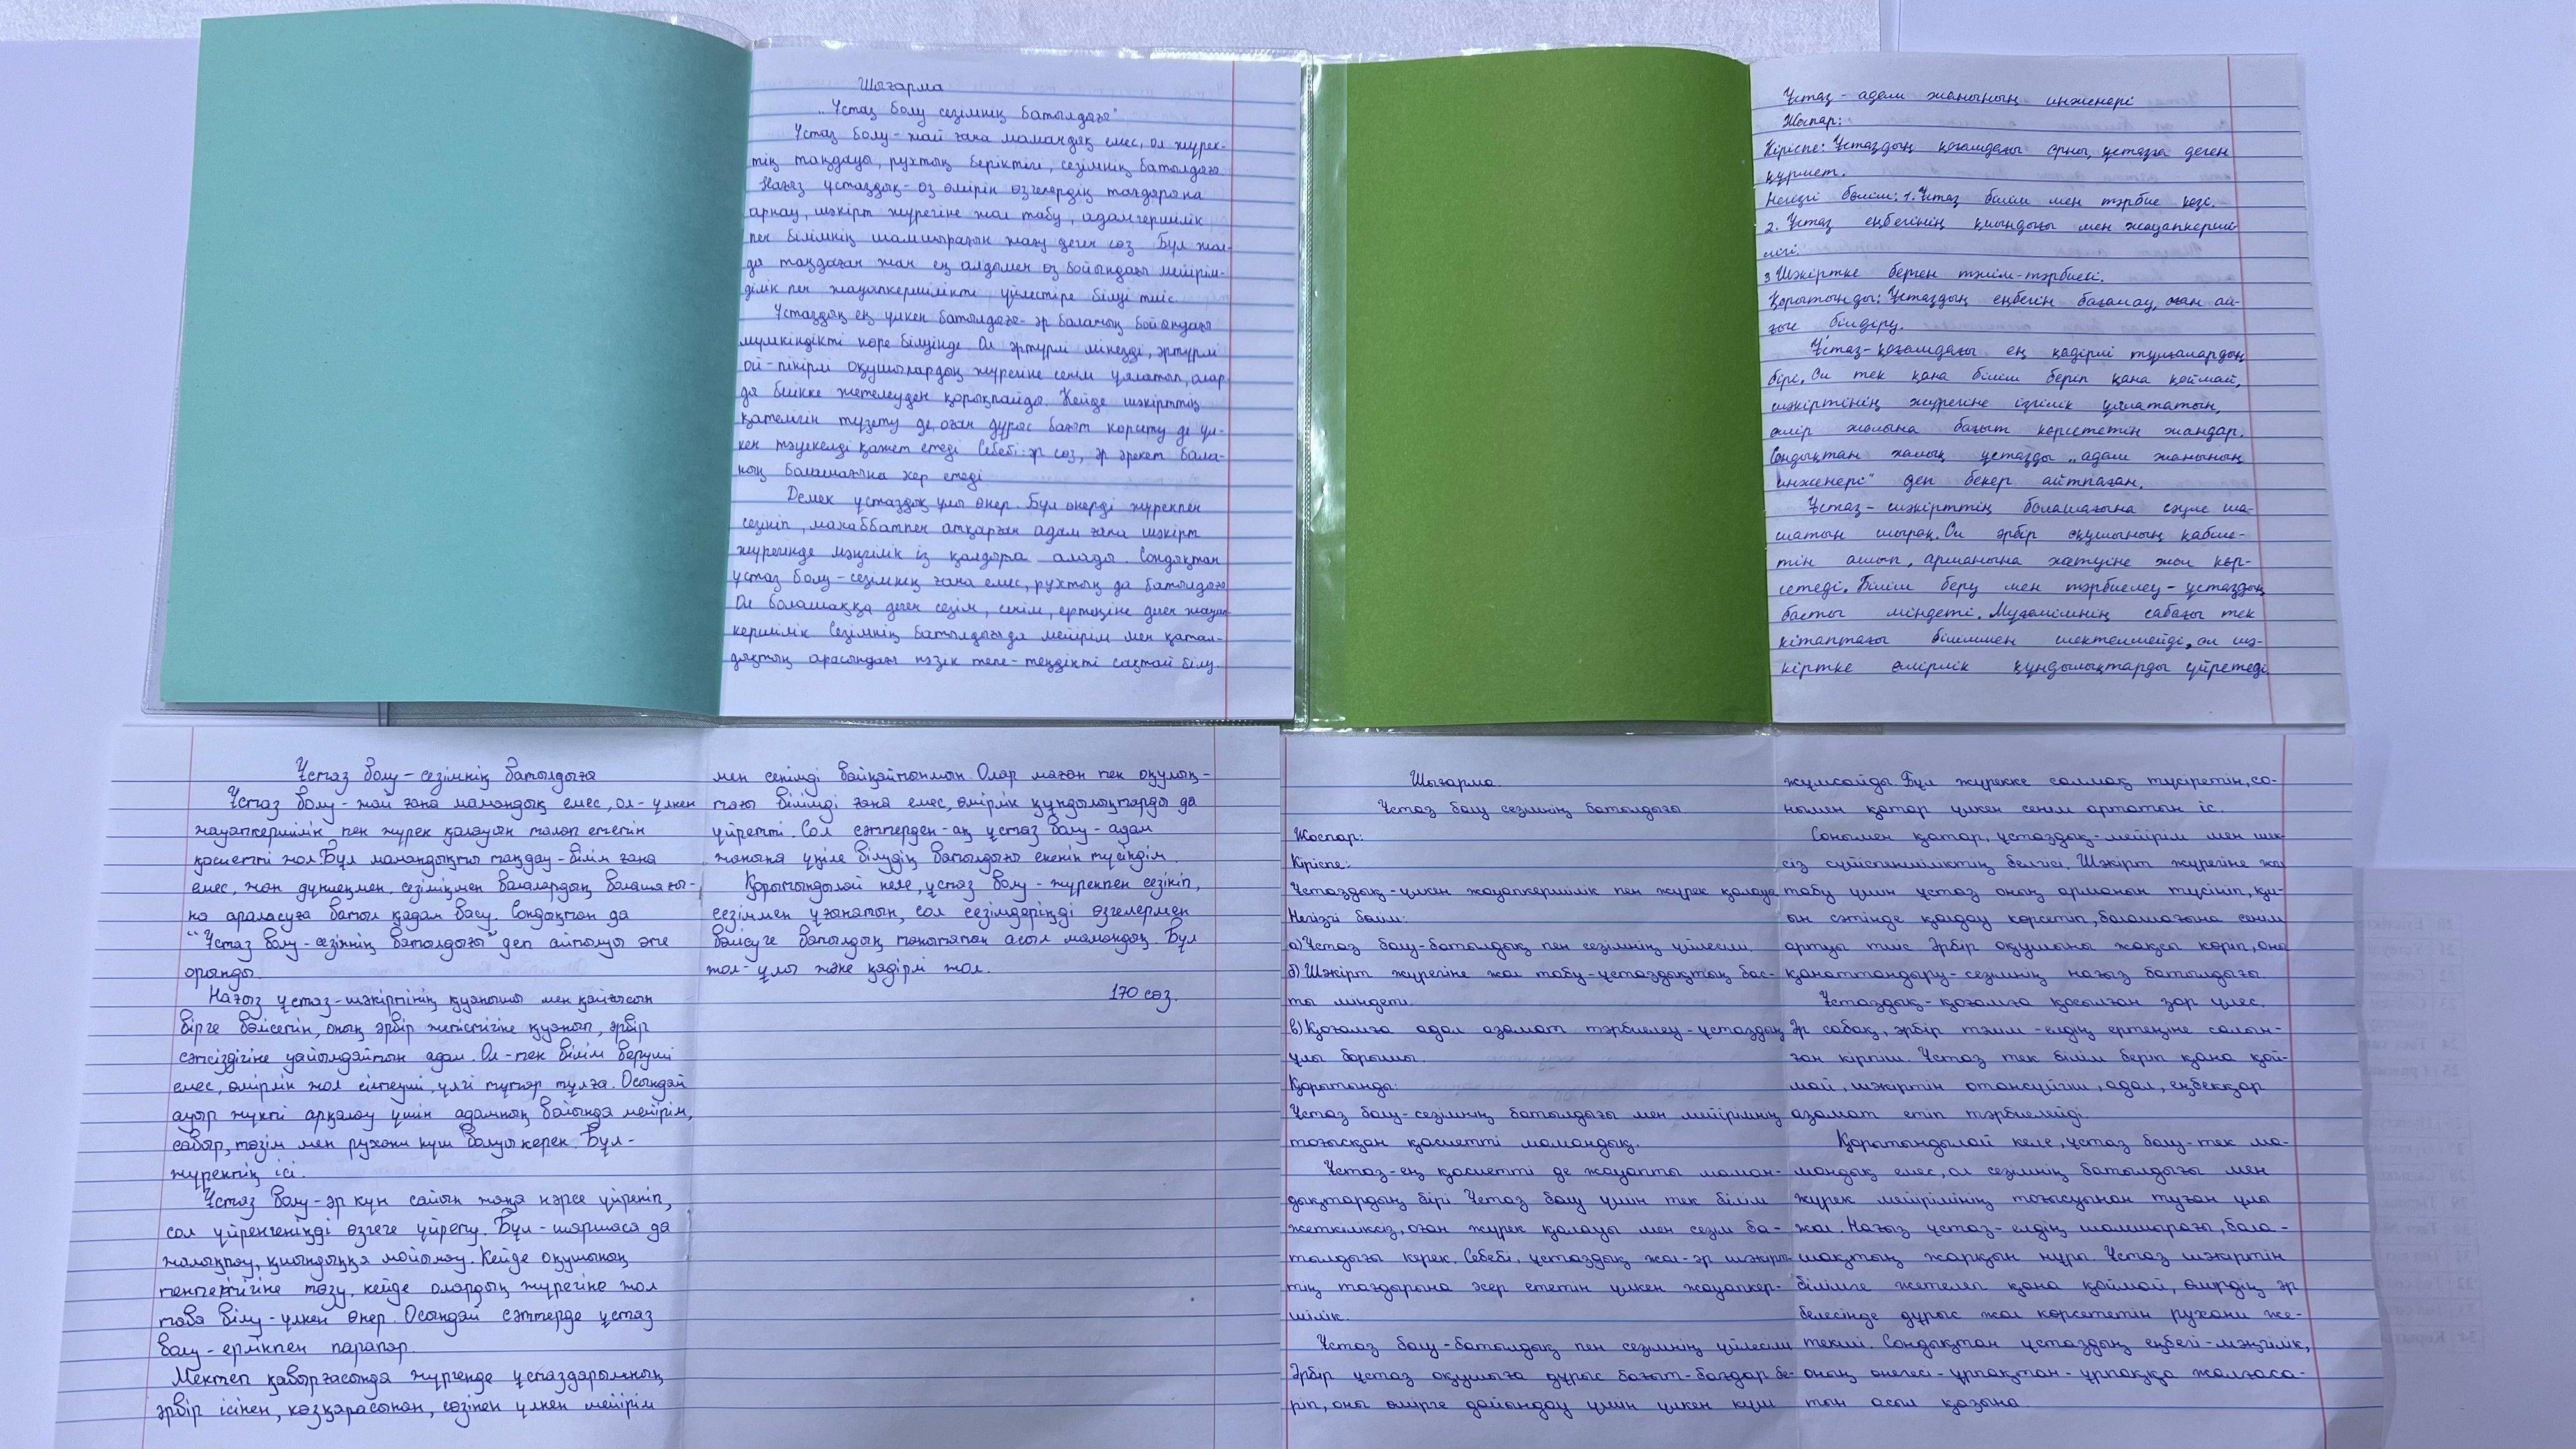 Шығарма
„Ұстаз болу сезімнің батылдығы"
Ұстаз болу - жай ғана мамандық емес, ол жүрек-
тің таңдауы, рухтың беріктігі, сезімнің батылдығы.
Нағыз ұстаздық - өз өмірін өзгелердің тағдарына
арнау, шәкірт жүрегіне жол табу, адамгершілік
пен білімнің шамшырағын жағу деген сөз Бұл жол-
ды таңдаған жан ең алдымен өз бойындағы мейірім-
ділік пен жауапкершілікті үйлестіре білуі тиіс.
Ұстаздың ең үлкен батылдығы - әр баланың бойындағы
мүмкіндікті көре білуінде Ол әртүрлі мінезді, әртүрлі
ой-пікірлі оқушылардың жүрегіне сенім ұялатып, олар
ды биікке жетелеуден қорықпайды. Кейде шәкірттің
қателігін түзету де, оған дұрыс бағыт көрсету де үл-
кен тәуекелді қажет етеді Себебі: әр сөз, әр әрекет бала-
ның болашағына әсер етеді
Демек ұстаздық ұлы өнер. Бұл өнерді жүрекпен
сезініп, махаббатпен атқарған адам ғана шәкірт
жүрегінде мәңгілік із қалдыра алады. Сондықтан
ұстаз болу - сезімнің ғана емес, рухтың да батылдығы
Ол болашаққа деген сезім, сенім, ертеңіне деген жауап-
кершілік Сезімнің батылдығы да мейірім мен қатал-
дықтың арасындағы нәзік тепе-теңдікті сақтай білу.
Ұстаз - адам жанының инженері
Жоспар:
Кіріспе: Ұстаздың қоғамдағы орны, ұстазға деген
құрмет.
Негізгі бөлім: 1. Ұстаз білім мен тәрбие көзі.
2. Ұстаз еңбегінің қиындығы мен жауапкерші-
лігі.
3 Шәкіртке берген тәлім-тәрбиесі.
Қорытынды: Ұстаздың еңбегін бағалау, оған ал-
ғыс білдіру.
Ұстаз - қоғамдағы ең қадірлі тұлғалардың
бірі. Ол тек қана білім беріп қана қоймай,
шәкіртінің жүрегіне ізгілік ұялататын,
өмір жолына бағыт көрсететін жандар.
Сондықтан халық ұстазды „адам жанының
инженері" деп бекер айтпаған.
Ұстаз - шәкірттің болашағына сәуле ша-
шатын шырақ. Ол әрбір оқушының қабіле-
тін ашып, арманына жетуіне жол көр-
сетеді. Білім беру мен тәрбиелеу - ұстаздың
басты міндеті. Мұғалімнің сабағы тек
кітаптағы біліммен шектелмейді, ол шә-
кіртке өмірлік құндылықтарды үйретеді.
Ұстаз болу - сезімнің батылдығы
Ұстаз болу - жай ғана мамандық емес, ол - үлкен
жауапкершілік пен жүрек қалауын талап ететін
қасиетті жол. Бұл мамандықты таңдау - білім ғана
емес, жан дүниеңмен, сезіміңмен балалардың болашағы-
на араласуға батыл қадам басу. Сондықтан да
"Ұстаз болу - сезімнің батылдығы" деп айтылуы өте
орынды.
Нағыз ұстаз - шәкіртінің қуанышы мен қайғысын
бірге бөлісетін, оның әрбір жетістігіне қуанып, әрбір
сәтсіздігіне уайымдайтын адам. Ол - тек білім беруші
емес, өмірлік жол сілтеуші, үлгі тұтар тұлға. Осындай
ауыр жүкті арқалау үшін адамның бойында мейірім,
сабыр, төзім мен рухани күш болуы керек. Бұл -
жүректің ісі.
Ұстаз болу - әр күн сайын жаңа нәрсе үйреніп,
сол үйренгеніңді өзгеге үйрету. Бұл - шаршаса да
жалықпау, қиындыққа мойымау. Кейде оқушының
тентектігіне төзу, кейде олардың жүрегіне жол
таба білу - үлкен өнер. Осындай сәттерде ұстаз
болу - ерлікпен парапар.
Мектеп қабырғасында жүргенде ұстаздарымның
әрбір ісінен, көзқарасынан, сөзінен үлкен мейірім
мен сенімді байқайтынмын. Олар маған тек оқулық-
тағы білімді ғана емес, өмірлік құндылықтарды да
үйретті. Сол сәттерден-ақ ұстаз болу - адам
жанына үңіле білудің батылдығы екенін түсіндім.
Қорытындылай келе, ұстаз болу - жүрекпен сезініп,
сезіммен ұғынатын, сол сезімдеріңді өзгелермен
бөлісуге батылдық танытатын асыл мамандық. Бұл
жол - ұлы және қадірлі жол.
170 сөз.
Шығарма.
Ұстаз болу сезімнің батылдығы
Жоспар:
Кіріспе:
Ұстаздық - үлкен жауапкершілік пен жүрек қалауы
Негізгі бөлім:
а) Ұстаз болу - батылдық пен сезімнің үйлесімі.
б) Шәкірт жүрегіне жол табу - ұстаздықтың бас-
ты міндеті.
в) Қоғамға адал азамат тәрбиелеу - ұстаздың
ұлы борышы.
Қорытынды:
Ұстаз болу - сезімнің батылдығы мен мейірімнің
тоғысқан қасиетті мамандық.
Ұстаз - ең қасиетті де жауапты маман-
дықтардың бірі. Ұстаз болу үшін тек білім
жеткіліксіз, оған жүрек қалауы мен сезім ба-
тылдығы керек. Себебі, ұстаздық жол - әр шәкірт-
тің тағдырына әсер ететін үлкен жауапкер-
шілік.
Ұстаз болу - батылдық пен сезімнің үйлесімі
Әрбір ұстаз оқушыға дұрыс бағыт-бағдар бе-
ріп, оны өмірге дайындау үшін үлкен күш
жұмсайды. Бұл жүрекке салмақ түсіретін, со-
нымен қатар үлкен сенім артатын іс.
Сонымен қатар, ұстаздық - мейірім мен шек-
сіз сүйіспеншіліктің белгісі. Шәкірт жүрегіне жол
табу үшін ұстаз оның арманын түсініп, қи-
ын сәтінде қолдау көрсетіп, болашағына сенім
артуы тиіс Әрбір оқушыны жақсы көріп, оны
қанаттандыру - сезімнің нағыз батылдығы.
Ұстаздық - қоғамға қосылған зор үлес.
Әр сабақ, әрбір тәлім - елдің ертеңіне салын-
ған кірпіш. Ұстаз тек білім беріп қана қой-
май, шәкіртін отансүйгіш, адал, еңбекқор
азамат етіп тәрбиелейді.
Қорытындылай келе, ұстаз болу - тек ма-
мандық емес, ол сезімнің батылдығы мен
жүрек мейірімінің тоғысуынан туған ұлы
жол. Нағыз ұстаз - елдің шамшырағы, бола-
шақтың жарқын нұры. Ұстаз шәкіртін
білімге жетелеп қана қоймай, өмірдің әр
белесінде дұрыс жол көрсететін рухани же-
текші. Сондықтан ұстаздың еңбегі - мәңгілік,
оның өнегесі - ұрпақтан-ұрпаққа жалғаса-
тын асыл қазына.